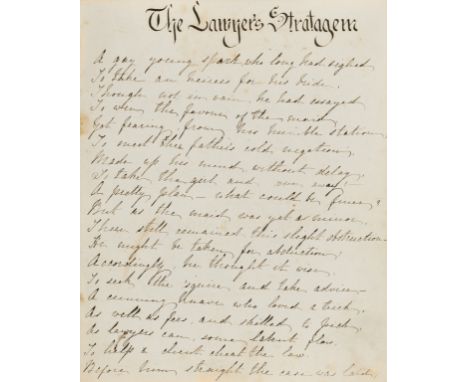 The Lawyer's Stratagem
A gay young spark who long had sighed
To take an heiress for his bride.
Though not in vain he had essayed
To win the favour of the maid
Yet fearing, from his humble station,
To meet the father's cold negation,
Made up his mind, without delay,
To take the girl and run away! -
A pretty plan - what could be finer?
But as the maid was yet a minor,
There still remained this slight obstruction -
He might be taken for abduction!
Accordingly he thought it wise
To seek the 'squire and take advice -
A cunning knave who loved a trick,
As well as fees, and skilled to pick,
As lawyers can, some latent flaw
To help a client cheat the law.
Before him straight the case was laid,